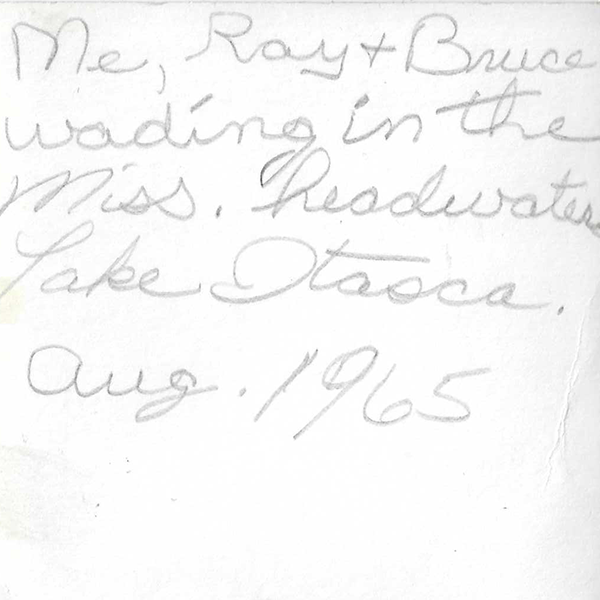 Me, Ray + Bruce
wading in the
Miss. headwaters
Lake Itasca.
Aug. 1965